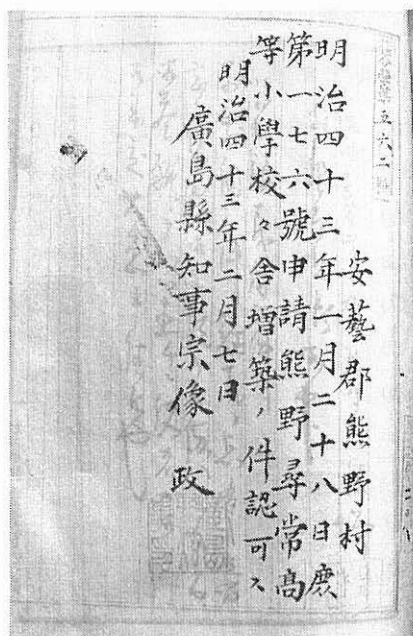 第五六二
安藝郡熊野村
明治四十三年一月二十八日庶
第一七六號申請熊野尋常高
等小學校々舎増築ノ件認可ス
明治四十三年二月七日
廣島縣知事宗像 政